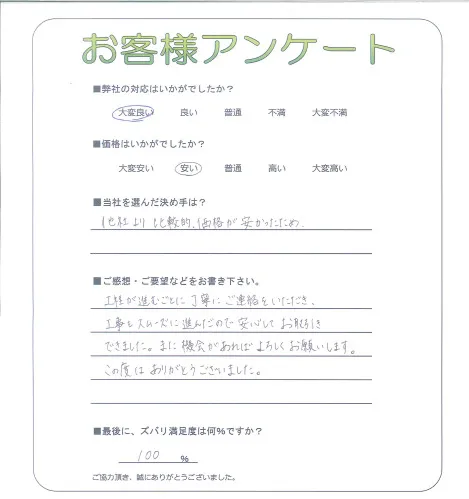 お客様アンケート
■弊社の対応はいかがでしたか?
大変良い 良い 普通 不満 大変不満
■価格はいかがでしたか?
大変安い 安い 普通 高い 大変高い
■当社を選んだ決め手は?
他社より比較的、価格が安かったため.
■ご感想・ご要望などをお書き下さい。
工程が進むごとに丁寧にご連絡をいただき、
工事もスムーズに進んだので安心してお取引き
できました。また機会があればよろしくお願いします。
この度はありがとうございました。
■最後に、ズバリ満足度は何%ですか?
100 %
ご協力頂き、誠にありがとうございました。